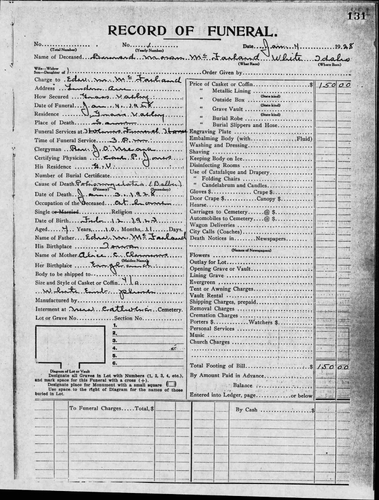 131
RECORD OF FUNERAL.
No. No. 1 Date, Jan. 4 1928
(Total Number) (Yearly Number)
Name of Deceased Moran McFarland White Idaho
(What Race) (Where Born)
Wife-Widow
Son-Daughter of Order Given by
Charge to Edw. M. McFarland
Address Linden Ave
How Secured Grass Valley
Date of Funeral Jan. 4, 1928
Residence Grass Valley
Place of Death
Funeral Services at Holmes Funeral Home
Time of Funeral Service
Clergyman Rev. J. O.
Certifying Physician Carl P. Jones
His Residence G. V.
Number of Burial Certificate
Cause of Death Poliomyelitis
Date of Death Jan 3 1928
Occupation of the Deceased At home
Single or Married Religion
Date of Birth Feb. 12, 1923
Aged 4 Years 10 Mos. 11 Days
Name of Father Edw. M. McFarland
His Birthplace Iowa
Name of Mother Alice E.
(Maiden Name)
Her Birthplace England
Body to be shipped to
Size and Style of Casket or Coffin 4/0
White Emb. plush
Manufactured by
Interment at New Catholic Cemetery
Lot or Grave No. Section No.
1.
2.
3.
4.
5.
6.
Diagram of Lot or Vault
Designate all Graves in Lot with Numbers (1, 2, 3, 4, etc.), and mark space for this Funeral with a cross (+).
Designate place for Monument with a small square
Use space to the right of Diagram for the names of those buried in Lot.
Price of Casket or Coffin $ 150 00
" Metallic Lining
(State kind)
" Outside Box
" Grave Vault
(State kind)
" Burial Robe
" Burial Slippers and Hose
Engraving Plate
Embalming Body (with Fluid)
Washing and Dressing
Shaving
Keeping Body on Ice
Disinfecting Rooms
Use of Catafalque and Drapery
" Folding Chairs
" Candelabrum and Candles
Gloves $ Crape $
Door Crape $ Hearse $
Carriages to Cemetery @ $
Automobiles to Cemetery @ $
Wagon Deliveries
City Calls (Coaches)
Death Notices in Newspapers
(Names of Newspapers)
Flowers
Outlay for Lot
Opening Grave or Vault
Lining Grave
Evergreen
Tent or Awning Charges
Vault Rental
Shipping Charges, prepaid
Removal Charges
Cremation Charges
Porters $ Watchers $
Personal Services
Music
Church Charges
Total Footing of Bill $ 150 00
By Amount Paid in Advance
Balance
Entered into Ledger, page or below
To Funeral Charges, Total, $
By Cash